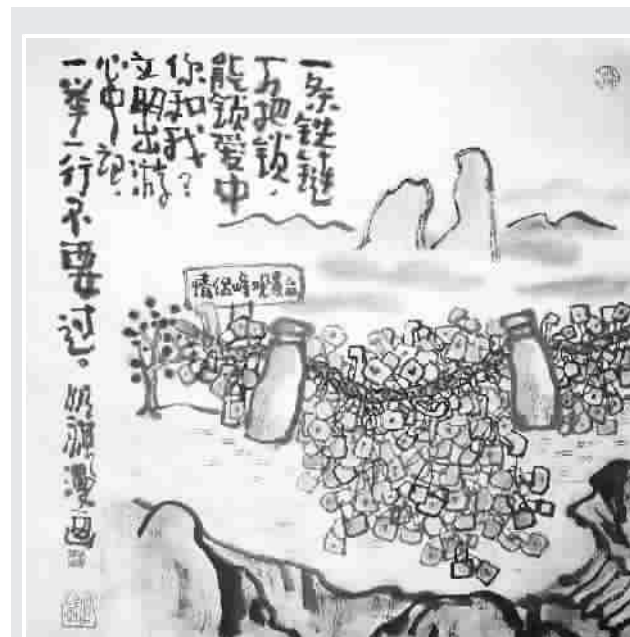 一条铁链
万把锁，
能锁爱中
你和我？
文明出游
心中记，
一举一行不要过。
漫画
情侣峰观景台